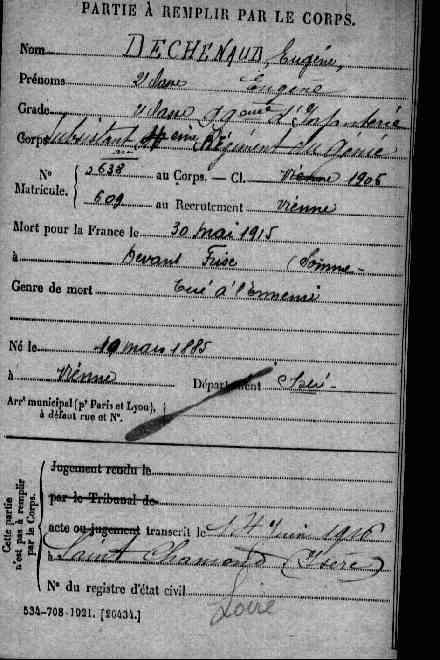 PARTIE À REMPLIR PAR LE CORPS.
Nom DECHENAUD, Eugène,
Prénoms Eugène
Grade 2e classe d'Infanterie
Corps Subsistant Régiment du génie
N° Matricule. { 2638 au Corps. — Cl. Vienne 1905
609 au Recrutement Vienne
Mort pour la France le 30 mai 1915
à Devant Frise (Somme-
Genre de mort Tué à l'Ennemi
Né le 19 mars 1885
à Vienne Département Isère-
Arrt municipal (pr Paris et Lyon),
à défaut rue et N°.
Cette partie
n'est pas à remplir
par le Corps.
Jugement rendu le
par le Tribunal de
acte ou jugement transcrit le 14 Juin 1916
à Saint Chamond (Isère)
N° du registre d'état civil
Loire
534-708-1921. [26434.]